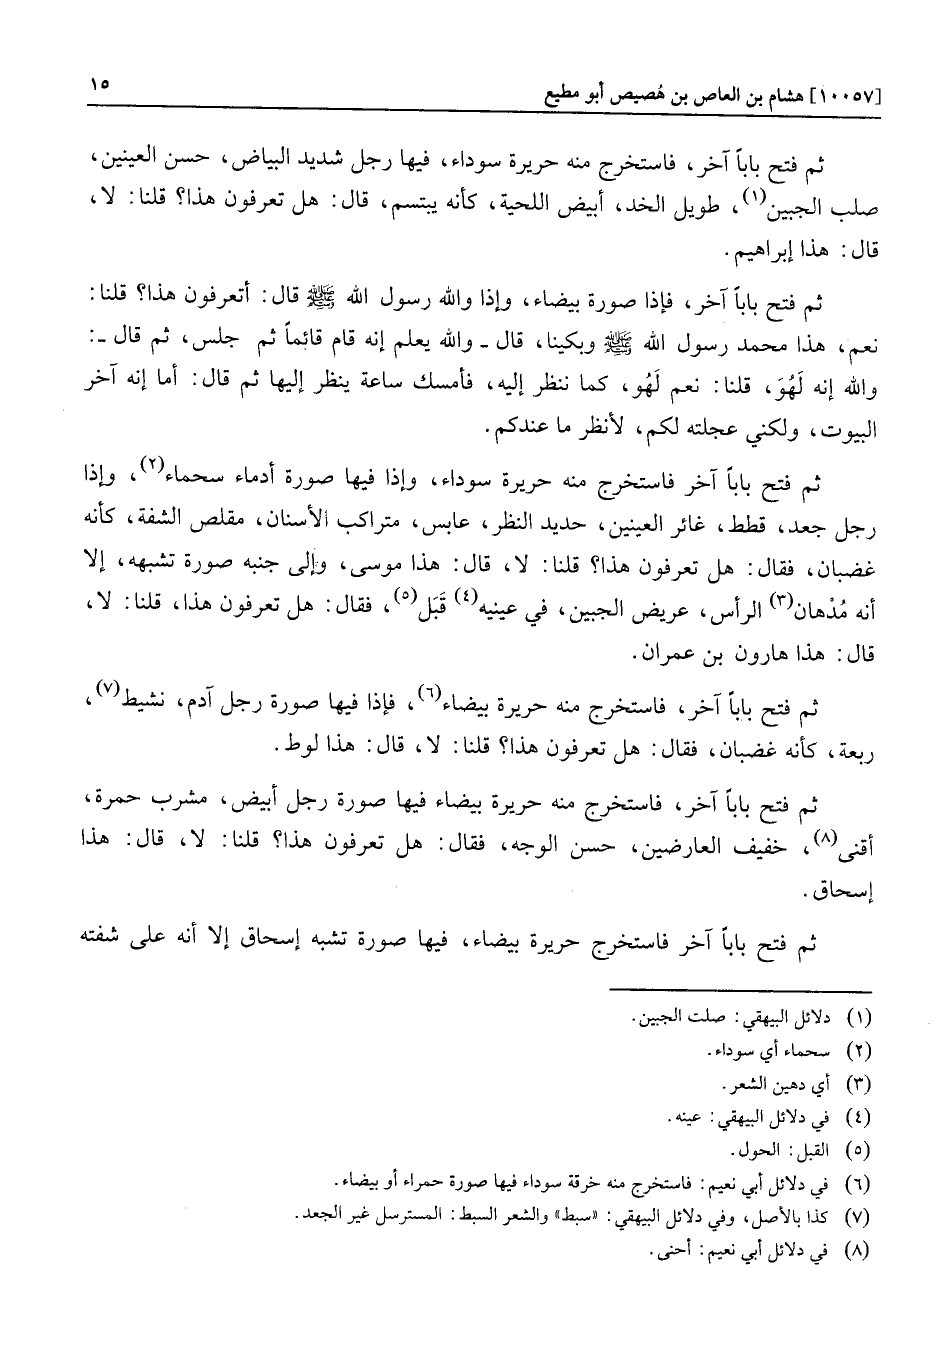 [١٠٠٥٧] هشام بن العاص بن هُصيص أبو مطيع ١٥
ثم فتح باباً آخر، فاستخرج منه حريرة سوداء، فيها رجل شديد البياض، حسن العينين،
صلب الجبين(١)، طويل الخد، أبيض اللحية، كأنه يبتسم، قال: هل تعرفون هذا؟ قلنا: لا،
قال: هذا إبراهيم.
ثم فتح باباً آخر، فإذا صورة بيضاء، وإذا والله رسول الله ﷺ قال: أتعرفون هذا؟ قلنا:
نعم، هذا محمد رسول الله ﷺ وبكينا، قال ـ والله يعلم إنه قام قائماً ثم جلس، ثم قال ـ:
والله إنه لَهُوَ، قلنا: نعم لَهُو، كما ننظر إليه، فأمسك ساعة ينظر إليها ثم قال: أما إنه آخر
البيوت، ولكني عجلته لكم، لأنظر ما عندكم.
ثم فتح باباً آخر فاستخرج منه حريرة سوداء، وإذا فيها صورة أدماء سحماء(٢)، وإذا
رجل جعد، قطط، غائر العينين، حديد النظر، عابس، متراكب الأسنان، مقلص الشفة، كأنه
غضبان، فقال: هل تعرفون هذا؟ قلنا: لا، قال: هذا موسى، وإلى جنبه صورة تشبهه، إلا
أنه مُدْهان(٣) الرأس، عريض الجبين، في عينيه(٤) قَبَل(٥)، فقال: هل تعرفون هذا، قلنا: لا،
قال: هذا هارون بن عمران.
ثم فتح باباً آخر، فاستخرج منه حريرة بيضاء(٦)، فإذا فيها صورة رجل آدم، نشيط(٧)،
ربعة، كأنه غضبان، فقال: هل تعرفون هذا؟ قلنا: لا، قال: هذا لوط.
ثم فتح باباً آخر، فاستخرج منه حريرة بيضاء فيها صورة رجل أبيض، مشرب حمرة،
أقنى(٨)، خفيف العارضين، حسن الوجه، فقال: هل تعرفون هذا؟ قلنا: لا، قال: هذا
إسحاق.
ثم فتح باباً آخر فاستخرج حريرة بيضاء، فيها صورة تشبه إسحاق إلا أنه على شفته
(١) دلائل البيهقي: صلت الجبين.
(٢) سحماء أي سوداء.
(٣) أي دهين الشعر.
(٤) في دلائل البيهقي: عينه.
(٥) القبل: الحول.
(٦) في دلائل أبي نعيم: فاستخرج منه خرقة سوداء فيها صورة حمراء أو بيضاء.
(٧) كذا بالأصل، وفي دلائل البيهقي: «سبط» والشعر السبط: المسترسل غير الجعد.
(٨) في دلائل أبي نعيم: أحنى.